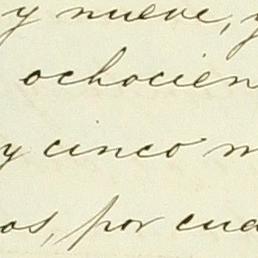 y nueve, y
ochocien
y cinco m
os, por cua